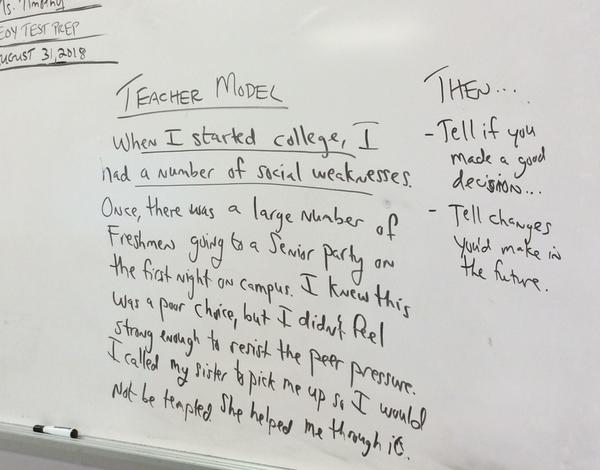 Ms. Timothy
EOY TEST PREP
AUGUST 31, 2018
TEACHER MODEL
When I started college, I
had a number of social weaknesses.
Once, there was a large number of
Freshmen going to a Senior party on
the first night on campus. I knew this
was a poor choice, but I didn't feel
strong enough to resist the peer pressure.
I called my sister to pick me up so I would
not be tempted. She helped me through it.
THEN...
- Tell if you
made a good
decision...
- Tell changes
you'd make in
the future.